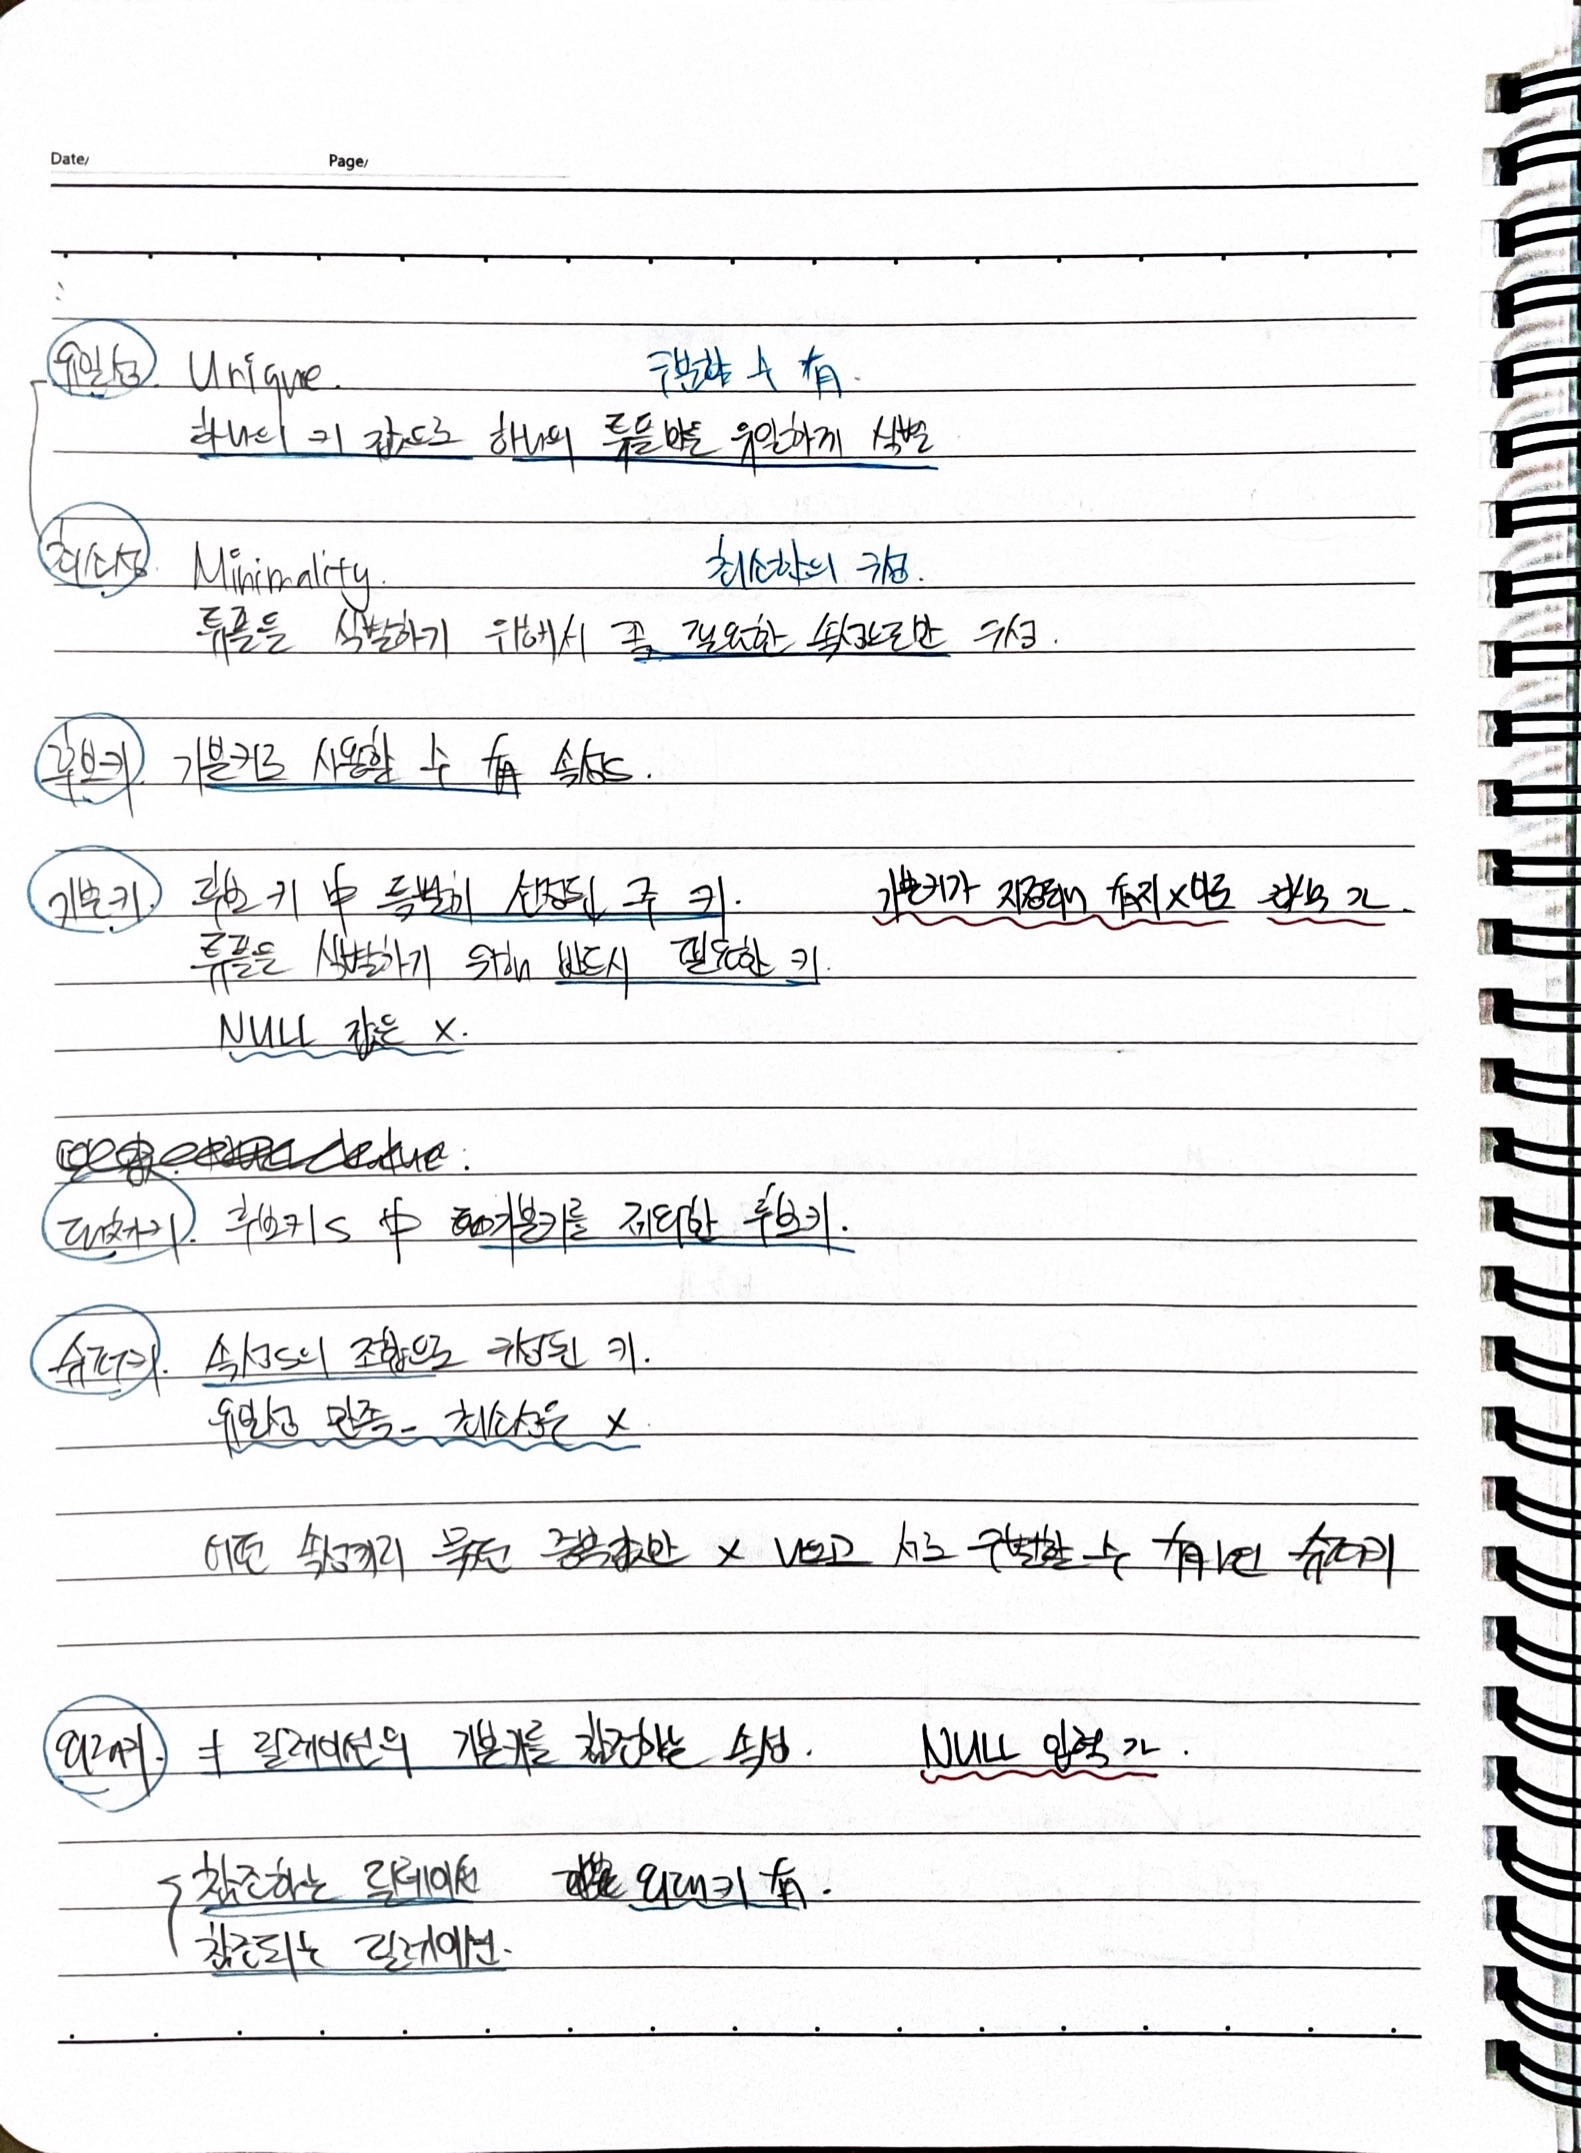 Date/ Page/
유일성. Unique. 구분할 수 有.
하나의 키 값으로 하나의 튜플만을 유일하게 식별
최소성. Minimality. 최소한의 구성.
튜플을 식별하기 위해서 꼭 필요한 속성으로만 구성.
후보키. 기본키로 사용할 수 有 속성s.
기본키. 후보 키 中 특별히 선정된 주 키. 기본키가 지정돼 有지 x 가.
튜플을 식별하기 위해 반드시 필요한 키.
NULL 값은 x.
대체키. 후보키s 中 기본키를 제외한 후보키.
슈퍼키. 속성s의 조합으로 구성된 키.
유일성 만족 - 최소성은 x
어떤 속성끼리 묶던 중복값만 x 나오고 서로 구별할 수 有면 슈퍼키
외래키. 릴레이션의 기본키를 참조하는 속성. NULL 입력 가.
참조하는 릴레이션 외래키 有.
참조되는 릴레이션.